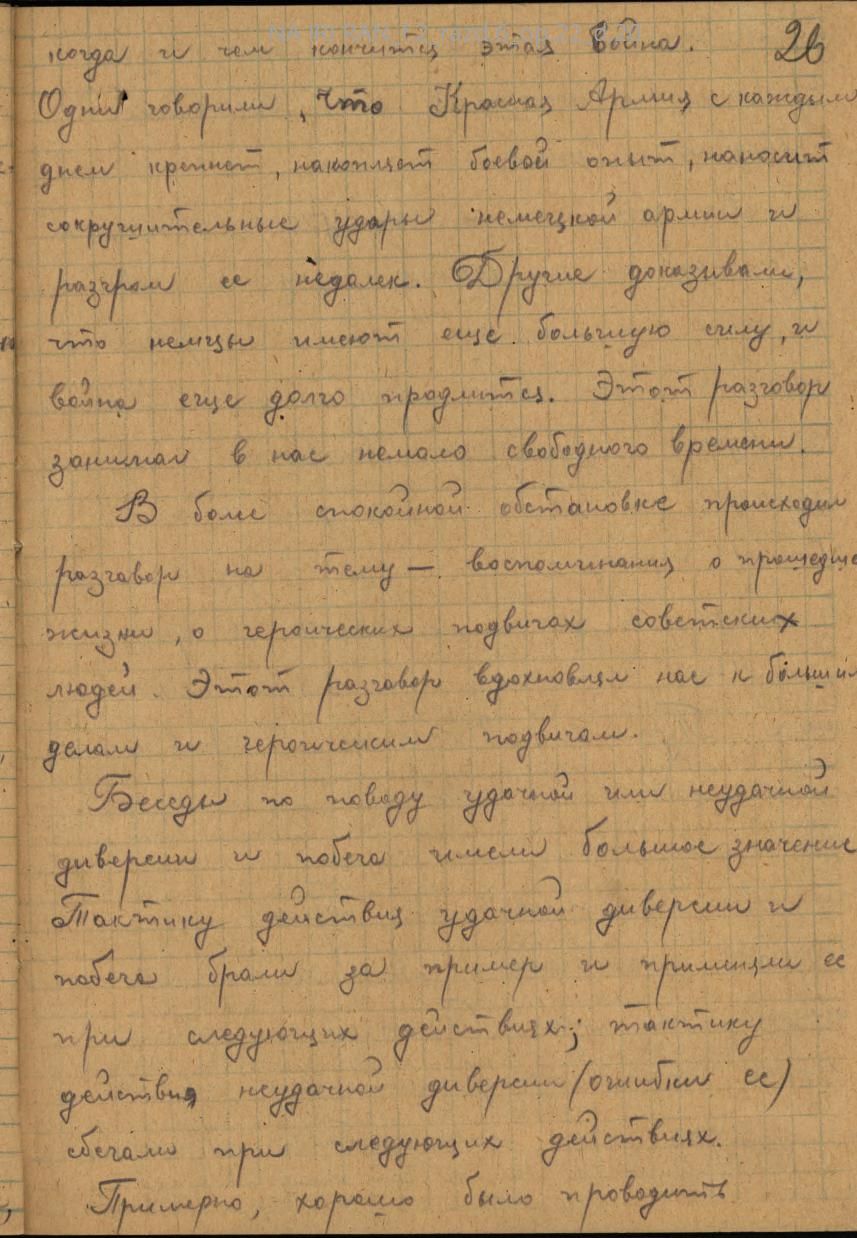 26
когда и чем кончится этая война.
Одни говорили, что Красная Армия с каждым
днем крепнет, накопляет боевой опыт, наносит
сокрушительные удары немецкой армии и
разгром ее недалек. Другие доказывали,
что немцы имеют еще большую силу, и
война еще долго продлится. Этот разговор
занимал в нас немало свободного времени.
В более спокойной обстановке происходил
разговор на тему — воспоминания о прошедше
жизни, о героических подвигах советских
людей. Этот разговор вдохновлял нас к большим
делам и героическим подвигам.
Беседы по поводу удачной или неудачной
диверсии и побега имели большое значение
Тактику действия удачной диверсии и
побега брали за пример и применяли ее
при следующих действиях; тактику
действия неудачной диверсии (ошибки ее)
сбегали при следующих действиях.
Примерно, хорошо было проводить